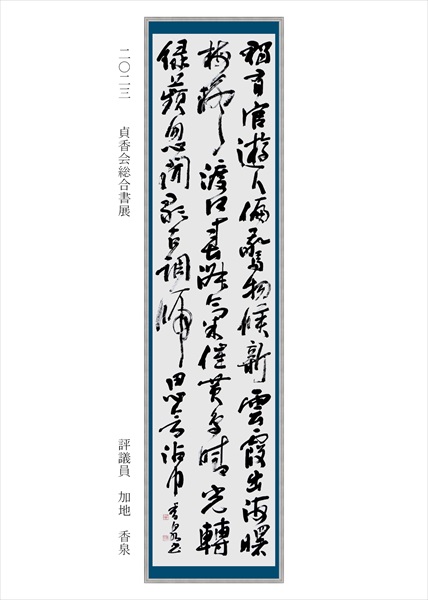 獨有宦遊人偏驚物候新雲霞出海曙
梅柳渡江春淑氣催黄鳥晴光轉
緑蘋忽聞歌古調歸思欲沾巾 香泉書
二〇二三 貞香会総合書展
評議員 加地 香泉